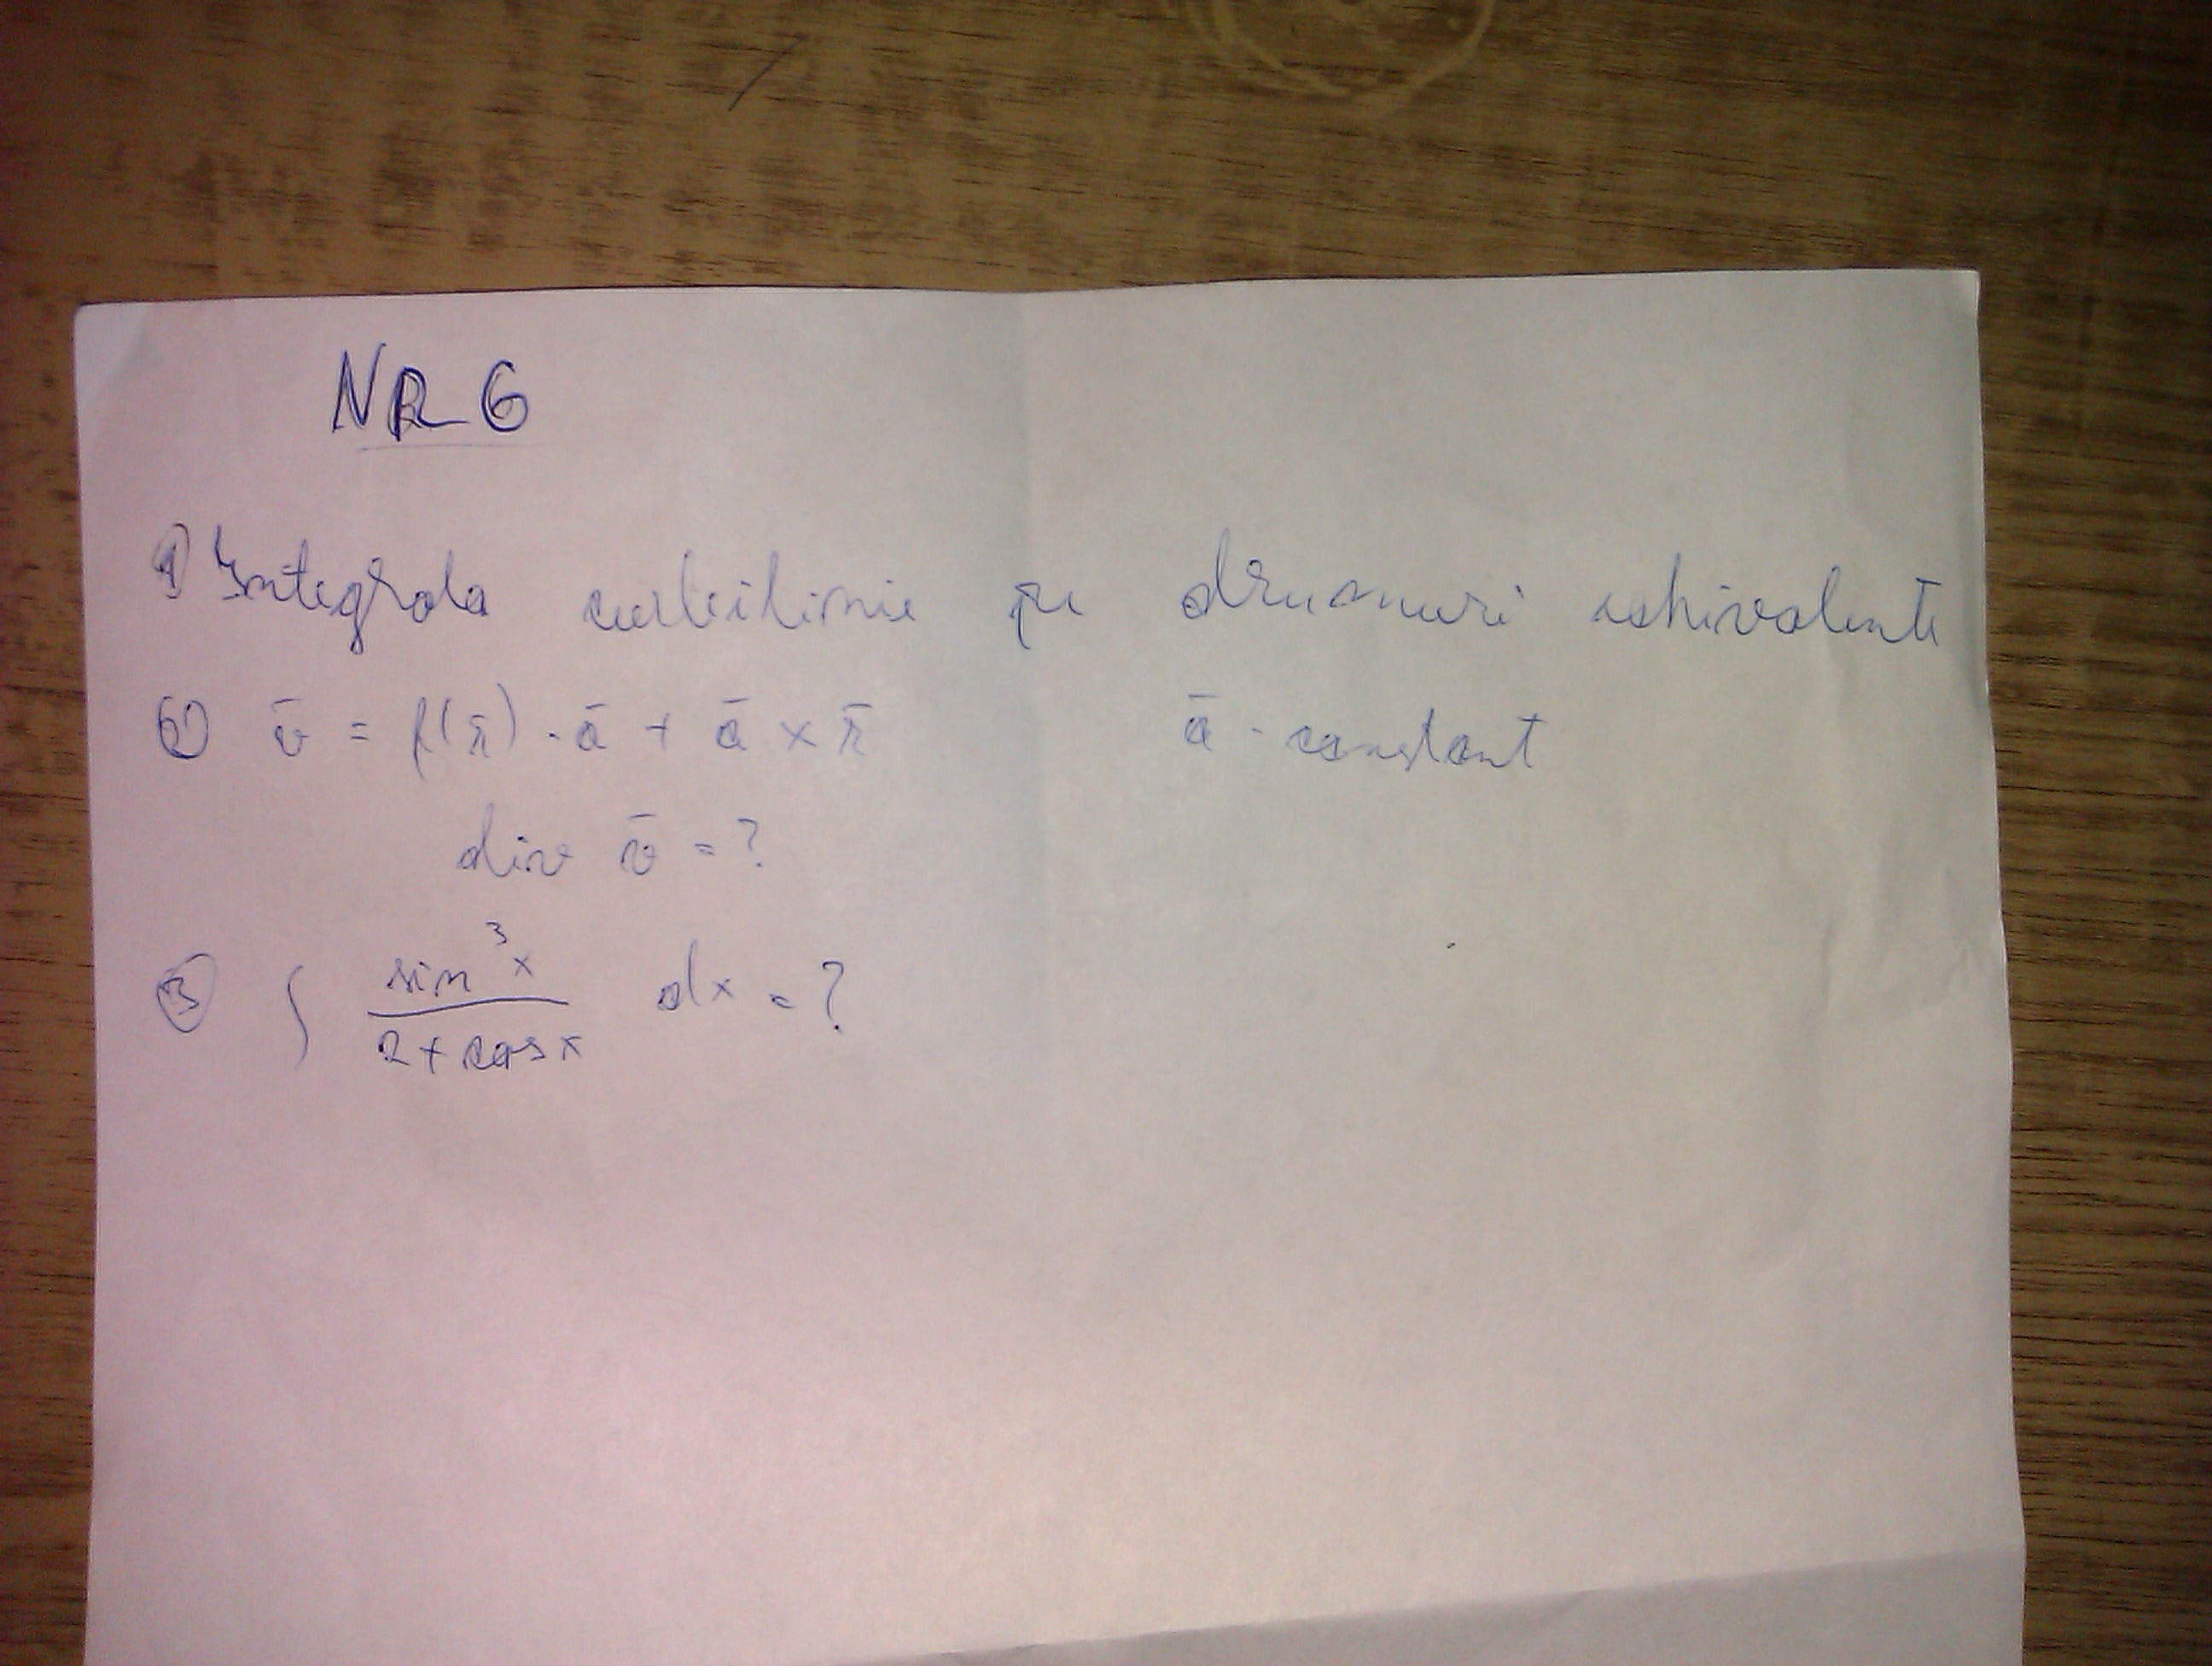 NR 6
1) Integrala curbilinie pe drumuri echivalente
2) v̄ = f(r̄) · ā + ā × r̄   ā - constant
div v̄ = ?
3) ∫ sin³x / (2 + cos x) dx = ?